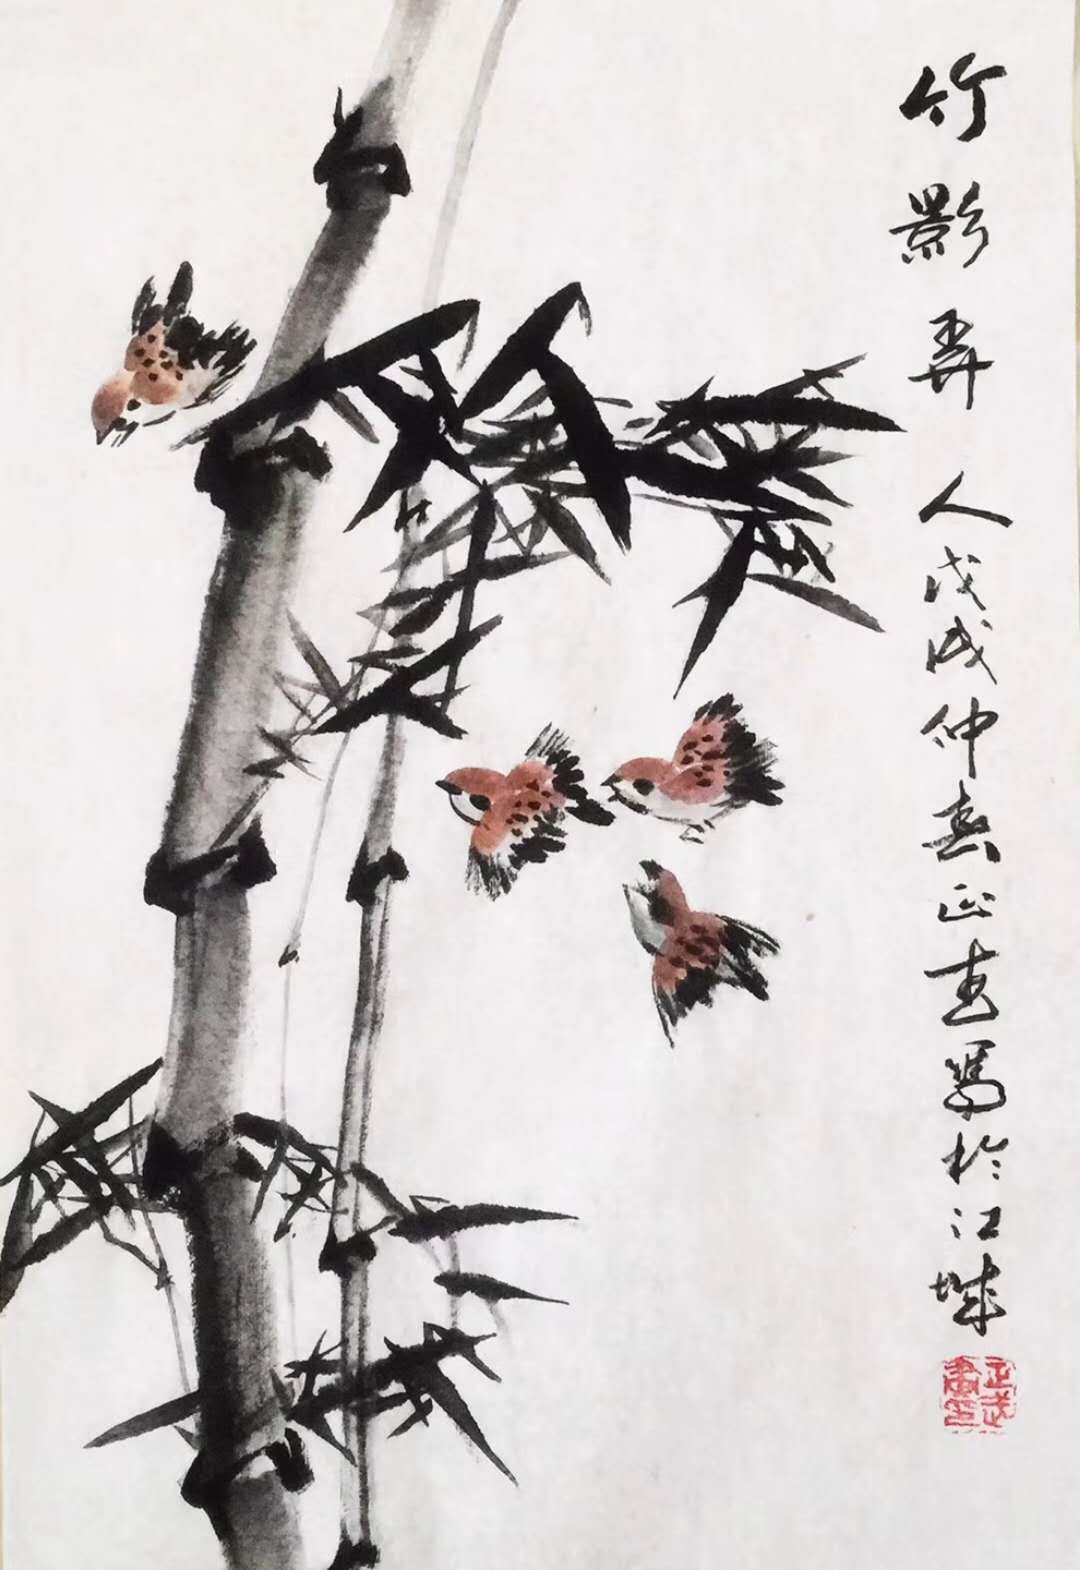 竹影弄人戊戌仲春正寫於江城